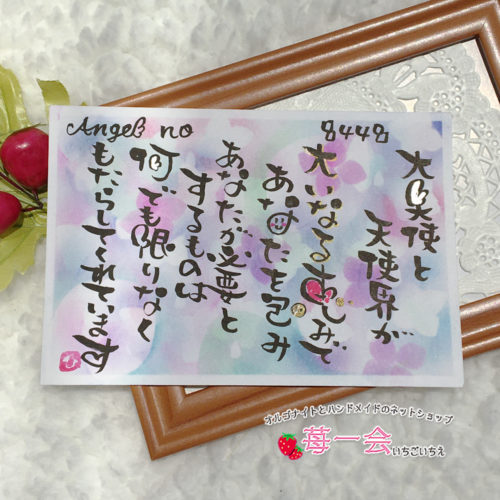 Angel no 8448
大天使と
天使界が
大いなる恵みで
あなたを包み
あなたが必要と
するものは
何でも限りなく
もたらしてくれています
ひ
オルゴナイトとハンドメイドのネットショップ
苺一会いちごいちえ